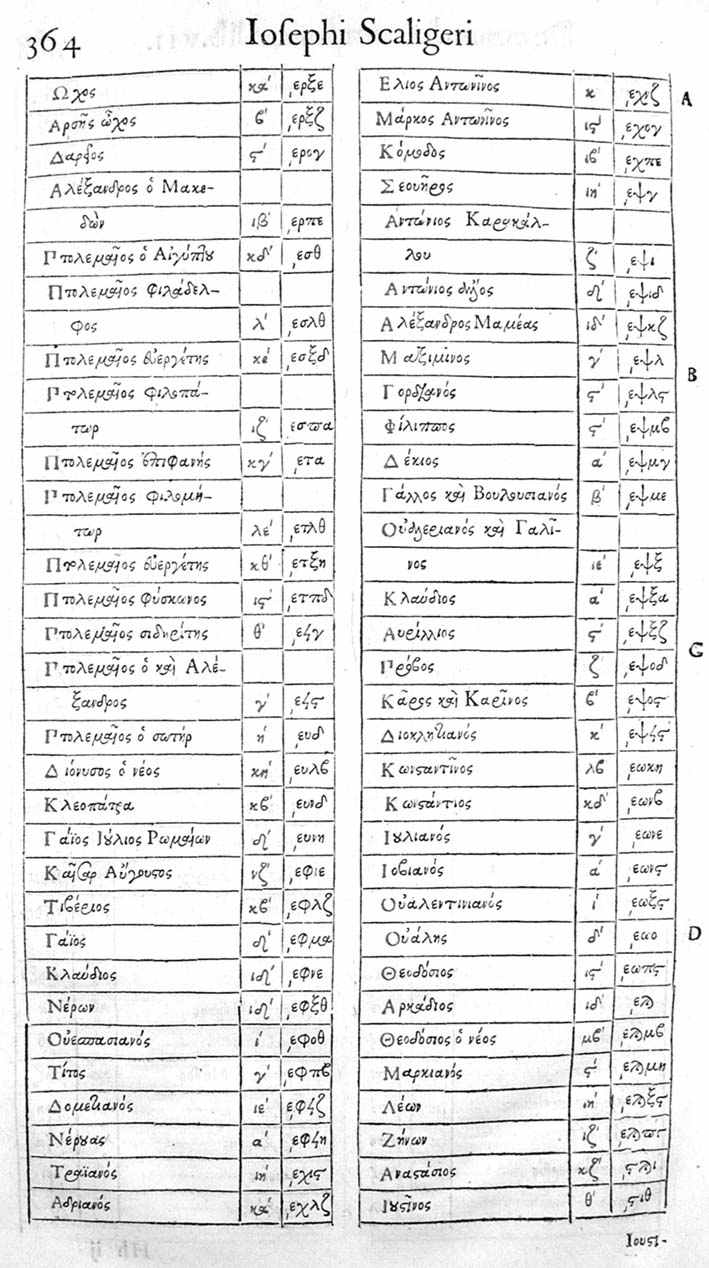 364 Iosephi Scaligeri
Ωχος κα' ͵ερξε
Αρσῆς ὦχος β' ͵ερξζ
Δαρεῖος ς' ͵ερογ
Αλέξανδρος ὁ Μακε-
δὼν ιβ' ͵ερπε
Πτολεμαῖος ὁ Αἰγύπτου κδ' ͵εσθ
Πτολεμαῖος φιλάδελ-
φος λ' ͵εσλθ
Πτολεμαῖος εὐεργέτης κε' ͵εσξδ
Πτολεμαῖος φιλοπά-
τωρ ιζ' ͵εσπα
Πτολεμαῖος ἐπιφανής κγ' ͵ετα
Πτολεμαῖος φιλομή-
τωρ λε' ͵ετλθ
Πτολεμαῖος εὐεργέτης κθ' ͵ετξη
Πτολεμαῖος φύσκωνος ις' ͵ετπδ
Πτολεμαῖος σιδηρίτης θ' ͵εϟγ
Πτολεμαῖος ὁ καὶ Αλέ-
ξανδρος γ' ͵εϟς
Πτολεμαῖος ὁ σωτήρ η' ͵ευδ
Διόνυσος ὁ νέος κη' ͵ευλβ
Κλεοπάτρα κβ' ͵ευνδ
Γάϊος Ιούλιος Ρωμαίων δ' ͵ευνη
Καῖσαρ Αὔγουστος νζ' ͵εφιε
Τιβέριος κβ' ͵εφλζ
Γάϊος δ' ͵εφμα
Κλαύδιος ιδ' ͵εφνε
Νέρων ιδ' ͵εφξθ
Οὐεσπασιανός ι' ͵εφοθ
Τίτος γ' ͵εφπβ
Δομετιανός ιε' ͵εφϟζ
Νέρουας α' ͵εφϟη
Τραϊανός ιη' ͵εχις
Αδριανός κα' ͵εχλζ
Ελιος Αντωνῖνος κ ͵εχιζ A
Μάρκος Αντωνῖνος ις' ͵εχογ
Κόμοδος ιβ' ͵εχπε
Σεουῆρος ιη' ͵εψγ
Αντώνιος Καρακάλ-
λου ζ' ͵εψι
Αντώνιος ἄλλος δ' ͵εψιδ
Αλέξανδρος Μαμέας ιδ' ͵εψκζ
Μαξιμῖνος γ' ͵εψλ B
Γορδιανός ς' ͵εψλς
Φίλιππος ς' ͵εψμβ
Δέκιος α' ͵εψμγ
Γάλλος καὶ Βουλουσιανός β' ͵εψμε
Οὐαλεριανός καὶ Γαλῖ-
νος ιε' ͵εψξ
Κλαύδιος α' ͵εψξα
Αυρίλλιος ς' ͵εψξζ C
Πρόβος ζ' ͵εψοδ
Κᾶρος καὶ Καρῖνος β' ͵εψος
Διοκλητιανός κ' ͵εψϟς
Κωνσταντῖνος λβ ͵εωκη
Κωνστάντιος κδ' ͵εωνβ
Ιουλιανός γ' ͵εωνε
Ιοβιανός α' ͵εωνς
Οὐαλεντινιανός ι' ͵εωξς
Οὐάλης δ' ͵εωο D
Θεοδόσιος ις' ͵εωπς
Αρκάδιος ιδ' ͵εϡ
Θεοδόσιος ὁ νέος μβ' ͵εϡμβ
Μαρκιανός ς' ͵εϡμη
Λέων ιη' ͵εϡξς
Ζήνων ιζ'
Αναστάσιος κζ' ͵ςϡι
Ιουστῖνος θ' ͵ςιθ
Ιουστι-